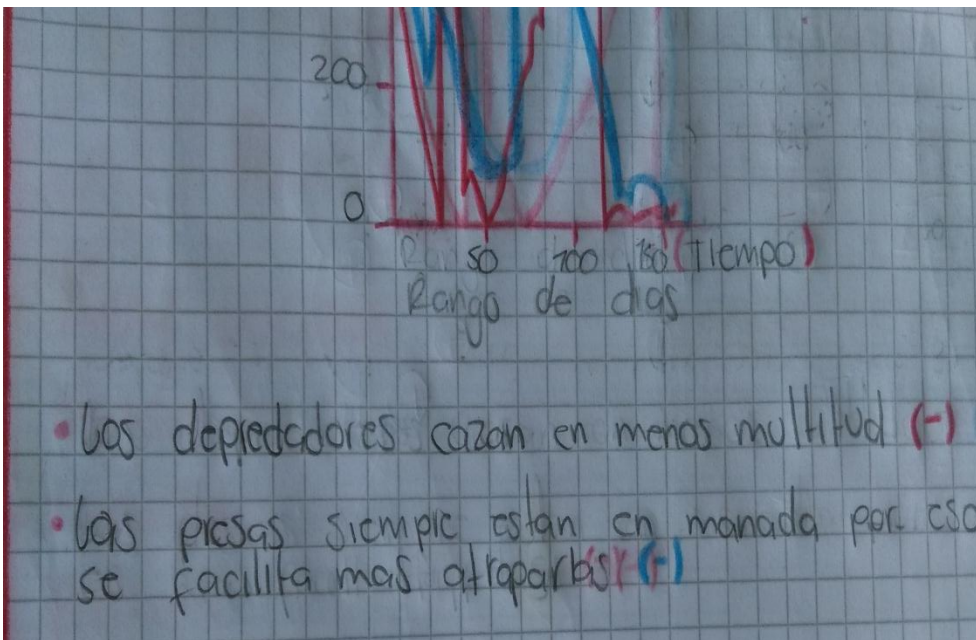 200
0
50 100 150 (Tiempo)
Rango de dias
• Los depredadores cazan en menos multitud (-)
• Las presas siempre estan en manada por eso
se facilita mas atraparlas (-)